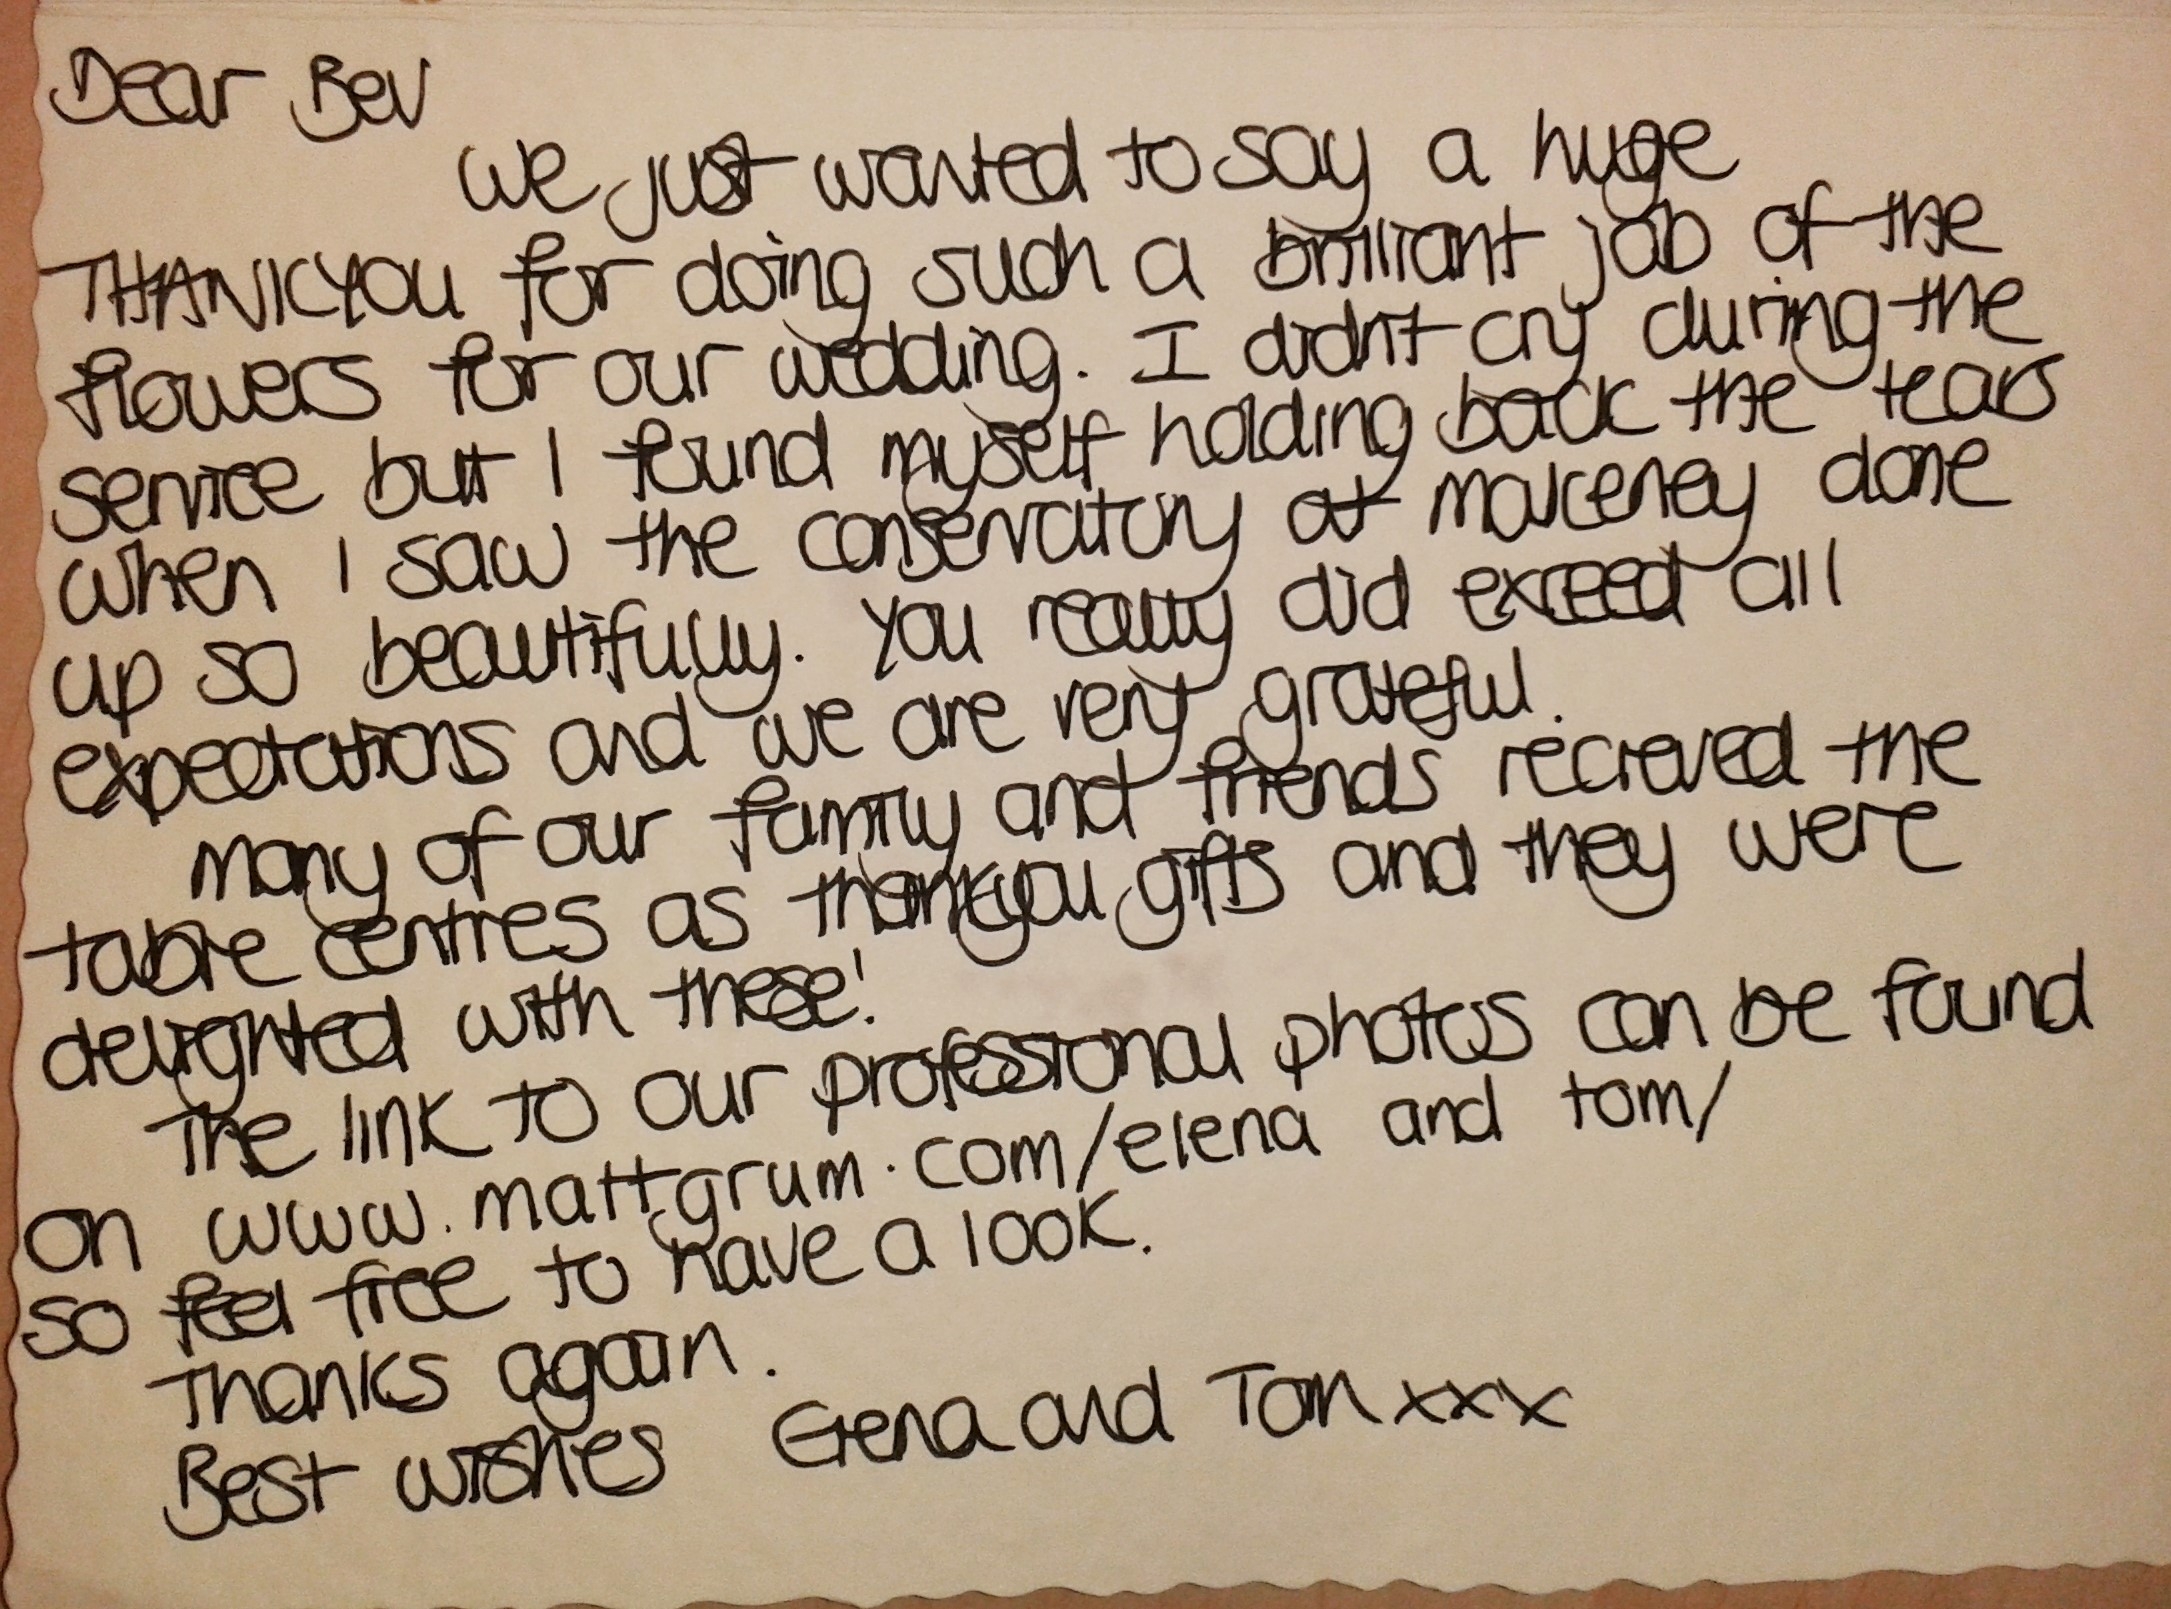 Dear Bev
we just wanted to say a huge
THANKYOU for doing such a brilliant job of the
flowers for our wedding. I didn't cry during the
service but I found myself holding back the tears
when I saw the conservatory at Malceney done
up so beautifully. You really did exceed all
expectations and we are very grateful.
Many of our family and friends recieved the
table centres as thankyou gifts and they were
delighted with these!
The link to our professional photos can be found
on www.mattgrum.com/elena and tom/
so feel free to have a look.
Thanks again.
Best wishes Elena and Tom xxx